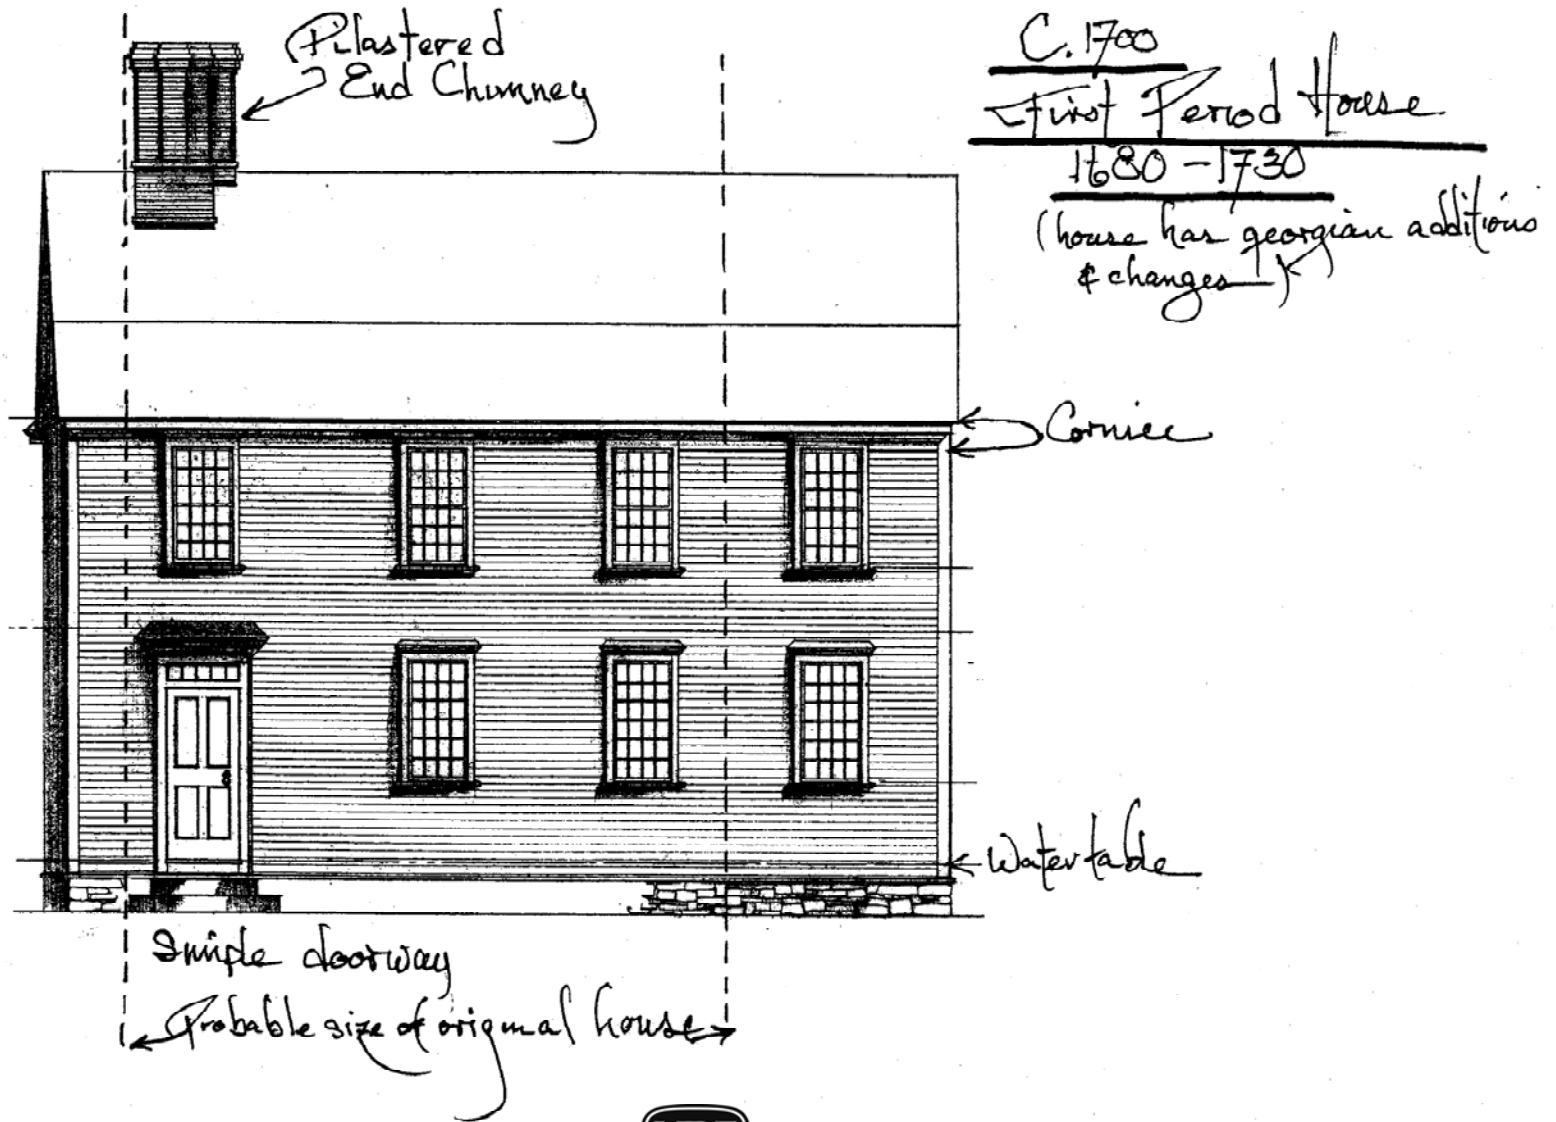 Pilastered
End Chimney
C. 1700
First Period House
1680 - 1730
(house has georgian additions
& changes)
Cornice
Watertable
Simple doorway
Probable size of original house